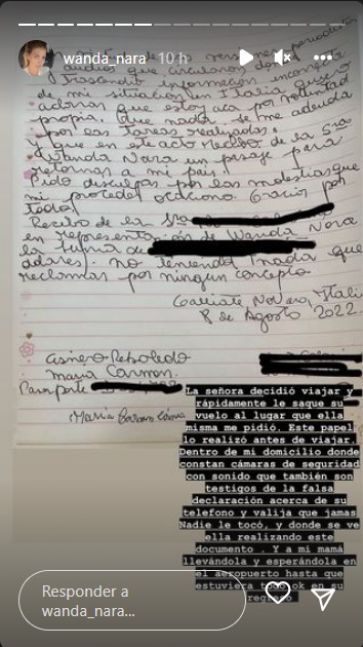 wanda_nara 10 h
trascendió informacion
de mi situacion en Italia quiero
aclarar que estoy aca por voluntad
propia. Que nada se me adeuda
por las tareas realizadas.
Y que en este acto recibo de la
Wanda Nara un pasaje para
retornar a mi pais.
Pido desculpas por las molestias que
mi proceder ocaciono. Gracias por
todo.
Recibo de la
en representación de Wanda Nora
la suma de
dolares. no teniendo nada que
reclamar por ningun concepto
8 de Agosto 2022.
Maria Carmen.
La señora decidió viajar y
rápidamente le saque su
vuelo al lugar que ella
misma me pidió. Este papel
lo realizó antes de viajar.
Dentro de mi domicilio donde
constan cámaras de seguridad
con sonido que también son
testigos de la falsa
declaración acerca de su
telefono y valija que jamas
Nadie le tocó, y donde se ve
ella realizando este
documento . Y a mi mamá
llevándola y esperándola en
el aeropuerto hasta que
estuviera todo ok en su
regreso
Responder a
wanda_nara...